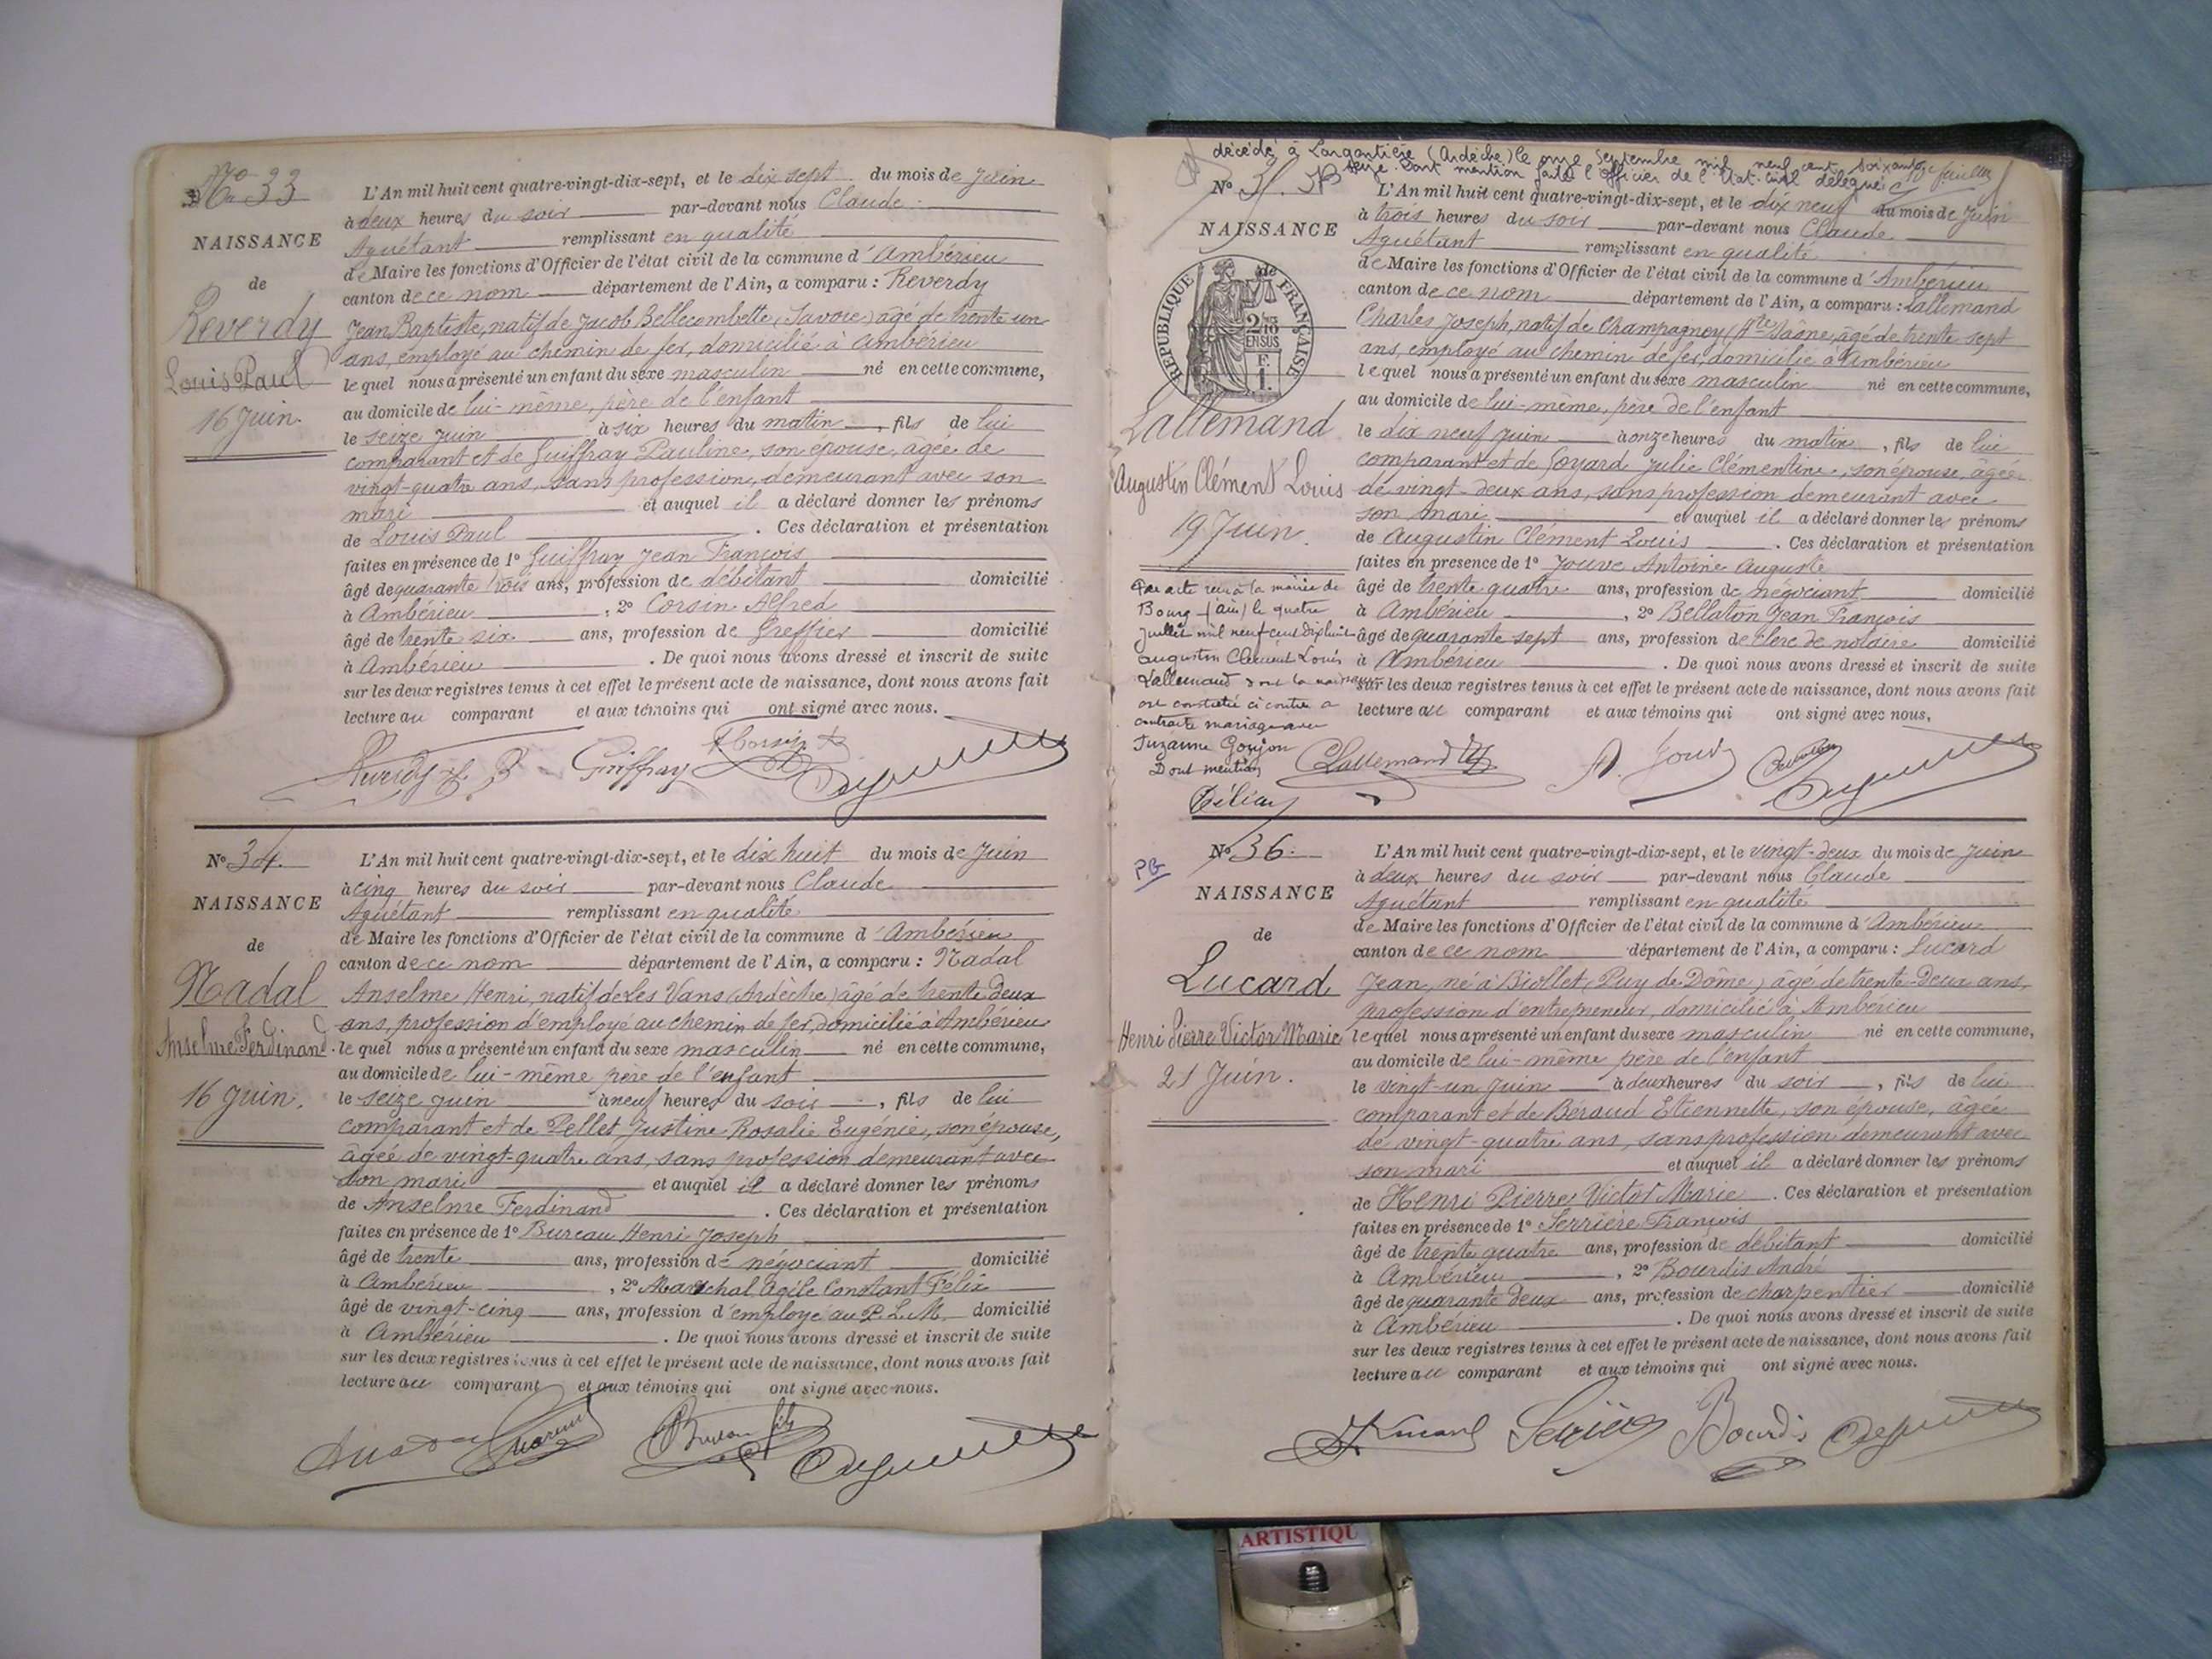 No 33
NAISSANCE
de
Reverdy
Louis Paul
16 Juin.
L'An mil huit cent quatre-vingt-dix-sept, et le dix sept du mois de Juin
à deux heures du soir par-devant nous Claude
Aguétant remplissant en qualité
de Maire les fonctions d'Officier de l'état civil de la commune d'Ambérieu
canton de ce nom département de l'Ain, a comparu : Reverdy
Jean Baptiste, natif de Jacob Bellecombette (Savoie) âgé de trente un
ans, employé au chemin de fer, domicilié à Ambérieu
lequel nous a présenté un enfant du sexe masculin né en cette commune,
au domicile de lui-même, père de l'enfant
le seize Juin à six heures du matin, fils de lui
comparant et de Guiffray Pauline, son épouse, âgée de
vingt-quatre ans, sans profession, demeurant avec son
mari et auquel il a déclaré donner les prénoms
de Louis Paul. Ces déclaration et présentation
faites en présence de 1° Guiffray Jean François
âgé de quarante trois ans, profession de débitant domicilié
à Ambérieu, 2° Corsin Alfred
âgé de trente six ans, profession de Greffier domicilié
à Ambérieu. De quoi nous avons dressé et inscrit de suite
sur les deux registres tenus à cet effet le présent acte de naissance, dont nous avons fait
lecture au comparant et aux témoins qui ont signé avec nous.
Reverdy J. B Guiffray Corsin
No 34.
NAISSANCE
de
Nadal
Anselme Ferdinand
16 Juin.
L'An mil huit cent quatre-vingt-dix-sept, et le dix huit du mois de Juin
à cinq heures du soir par-devant nous Claude
Aguétant remplissant en qualité
de Maire les fonctions d'Officier de l'état civil de la commune d'Ambérieu
canton de ce nom département de l'Ain, a comparu : Nadal
Anselme Henri, natif de Les Vans (Ardèche) âgé de trente deux
ans, profession d'employé au chemin de fer, domicilié à Ambérieu
lequel nous a présenté un enfant du sexe masculin né en cette commune,
au domicile de lui-même père de l'enfant
le seize juin à neuf heures du soir, fils de lui
comparant et de Pellet Justine Rosalie Eugénie, son épouse,
âgée de vingt-quatre ans, sans profession demeurant avec
son mari et auquel il a déclaré donner les prénoms
de Anselme Ferdinand. Ces déclaration et présentation
faites en présence de 1° Bureau Henri Joseph
âgé de trente ans, profession de négociant domicilié
à Ambérieu, 2° Maréchal Agile Constant Félix
âgé de vingt-cinq ans, profession d'employé au P. L. M. domicilié
à Ambérieu. De quoi nous avons dressé et inscrit de suite
sur les deux registres tenus à cet effet le présent acte de naissance, dont nous avons fait
lecture au comparant et aux témoins qui ont signé avec nous.
Bureau fils
décédé à Largentière (Ardèche) le onze Septembre mil neuf cent soixante
seize. Dont mention faite l'Officier de l'Etat-civil délégué
No
NAISSANCE
de
RÉPUBLIQUE FRANÇAISE
2/10
EN SUS
F.
1.
Lallemand
Augustin Clément Louis
19 Juin.
Par acte reçu à la mairie de
Bourg (Ain) le quatre
Juillet mil neuf cent dix huit
Augustin Clément Louis
Lallemand dont la naissance
est constatée ci contre a
contracté mariage avec
Suzanne Goujon
Dont mention
L'An mil huit cent quatre-vingt-dix-sept, et le dix neuf du mois de Juin
à trois heures du soir par-devant nous Claude
Aguétant remplissant en qualité
de Maire les fonctions d'Officier de l'état civil de la commune d'Ambérieu
canton de ce nom département de l'Ain, a comparu : Lallemand
Charles Joseph, natif de Champagney (Hte Saône, âgé de trente sept
ans, employé au chemin de fer, domicilié à Ambérieu
lequel nous a présenté un enfant du sexe masculin né en cette commune,
au domicile de lui-même, père de l'enfant
le dix neuf juin à onze heures du matin, fils de lui
comparant et de Goyard Julie Clémentine, son épouse, âgée
de vingt-deux ans, sans profession demeurant avec
son mari et auquel il a déclaré donner les prénoms
de Augustin Clément Louis. Ces déclaration et présentation
faites en présence de 1° Jouve Antoine Auguste
âgé de trente quatre ans, profession de négociant domicilié
à Ambérieu, 2° Bellaton Jean François
âgé de quarante sept ans, profession de clerc de notaire domicilié
à Ambérieu. De quoi nous avons dressé et inscrit de suite
sur les deux registres tenus à cet effet le présent acte de naissance, dont nous avons fait
lecture au comparant et aux témoins qui ont signé avec nous.
CLallemand A. Jouve
PG
No 36.
NAISSANCE
de
Lucard
Henri Pierre Victor Marie
21 Juin.
L'An mil huit cent quatre-vingt-dix-sept, et le vingt-deux du mois de Juin
à deux heures du soir par-devant nous Claude
Aguétant remplissant en qualité
de Maire les fonctions d'Officier de l'état civil de la commune d'Ambérieu
canton de ce nom département de l'Ain, a comparu : Lucard
Jean, né à Biollet (Puy de Dôme) âgé de trente-deux ans,
profession d'entrepreneur, domicilié à Ambérieu
lequel nous a présenté un enfant du sexe masculin né en cette commune,
au domicile de lui-même père de l'enfant
le vingt-un Juin à deux heures du soir, fils de lui
comparant et de Béraud Etiennette, son épouse, âgée
de vingt-quatre ans, sans profession demeurant avec
son mari et auquel il a déclaré donner les prénoms
de Henri Pierre Victor Marie. Ces déclaration et présentation
faites en présence de 1° Serrière François
âgé de trente quatre ans, profession de débitant domicilié
à Ambérieu, 2° Bourdis André
âgé de quarante deux ans, profession de charpentier domicilié
à Ambérieu. De quoi nous avons dressé et inscrit de suite
sur les deux registres tenus à cet effet le présent acte de naissance, dont nous avons fait
lecture au comparant et aux témoins qui ont signé avec nous.
Lucard Bourdis
ARTISTIQU